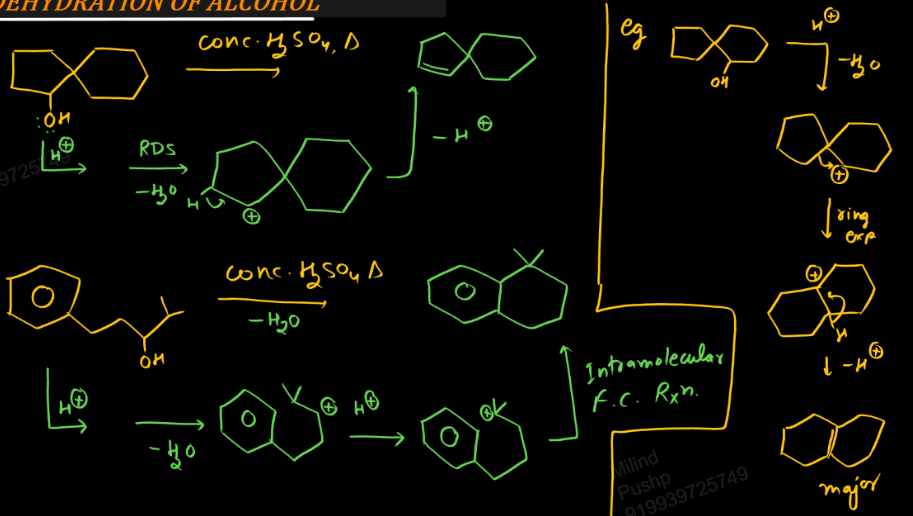 DEHYDRATION OF ALCOHOL
conc. H₂SO₄, Δ
:ÖH
H⊕
RDS
-H₂O
H
⊕
- H⊕
conc. H₂SO₄ Δ
-H₂O
OH
H⊕
-H₂O
⊕
H⊕
⊕
Intramolecular
F.C. Rxn.
eg
OH
H⊕
-H₂O
⊕
ring
exp
⊕
H
-H⊕
major
9725749
Milind
Pushp
919939725749